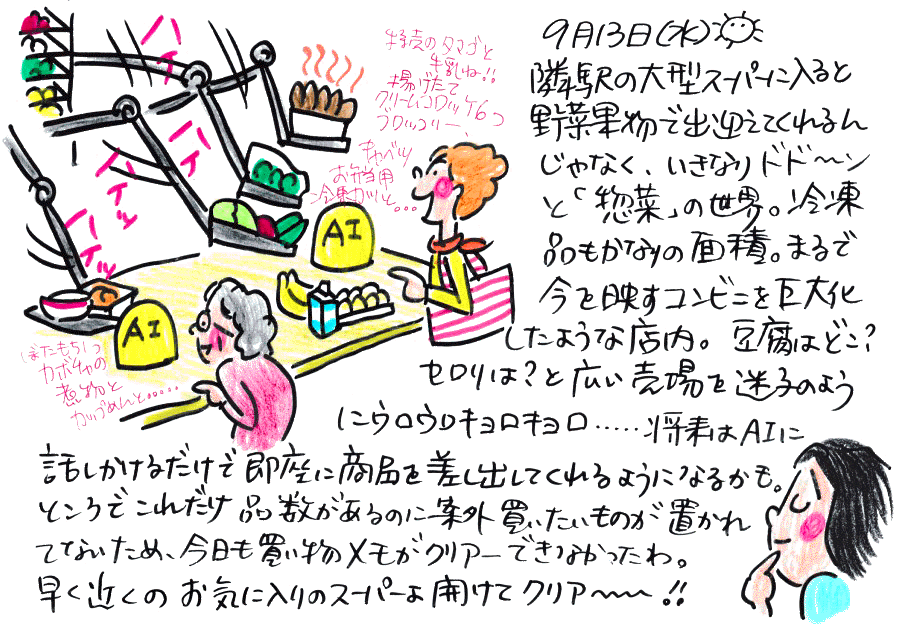 9月13日(水)
隣駅の大型スーパーに入ると
野菜果物で出迎えてくれるん
じゃなく、いきなりドド〜ン
と「惣菜」の世界。冷凍
品もかなりの面積。まるで
今を映すコンビニを巨大化
したような店内。豆腐はどこ?
セロリは?と広い売場を迷子のよう
にウロウロキョロキョロ……将来はAIに
話しかけるだけで即座に商品を差し出してくれるようになるかも。
ところでこれだけ品数があるのに案外買いたいものが置かれ
てないため、今日も買い物メモがクリアーできなかったわ。
早く近くのお気に入りのスーパーよ開けてクリア〜〜!!
特売のタマゴと
牛乳ね!!
揚げたて
クリームコロッケ6つ
ブロッコリー、
キャベツ
お弁当用
冷凍カツと…
ハイッ
ハイッ
ハイッ
ハイッ
AI
AI
ぼたもち1つ
カボチャの
煮物と
カップめんと……